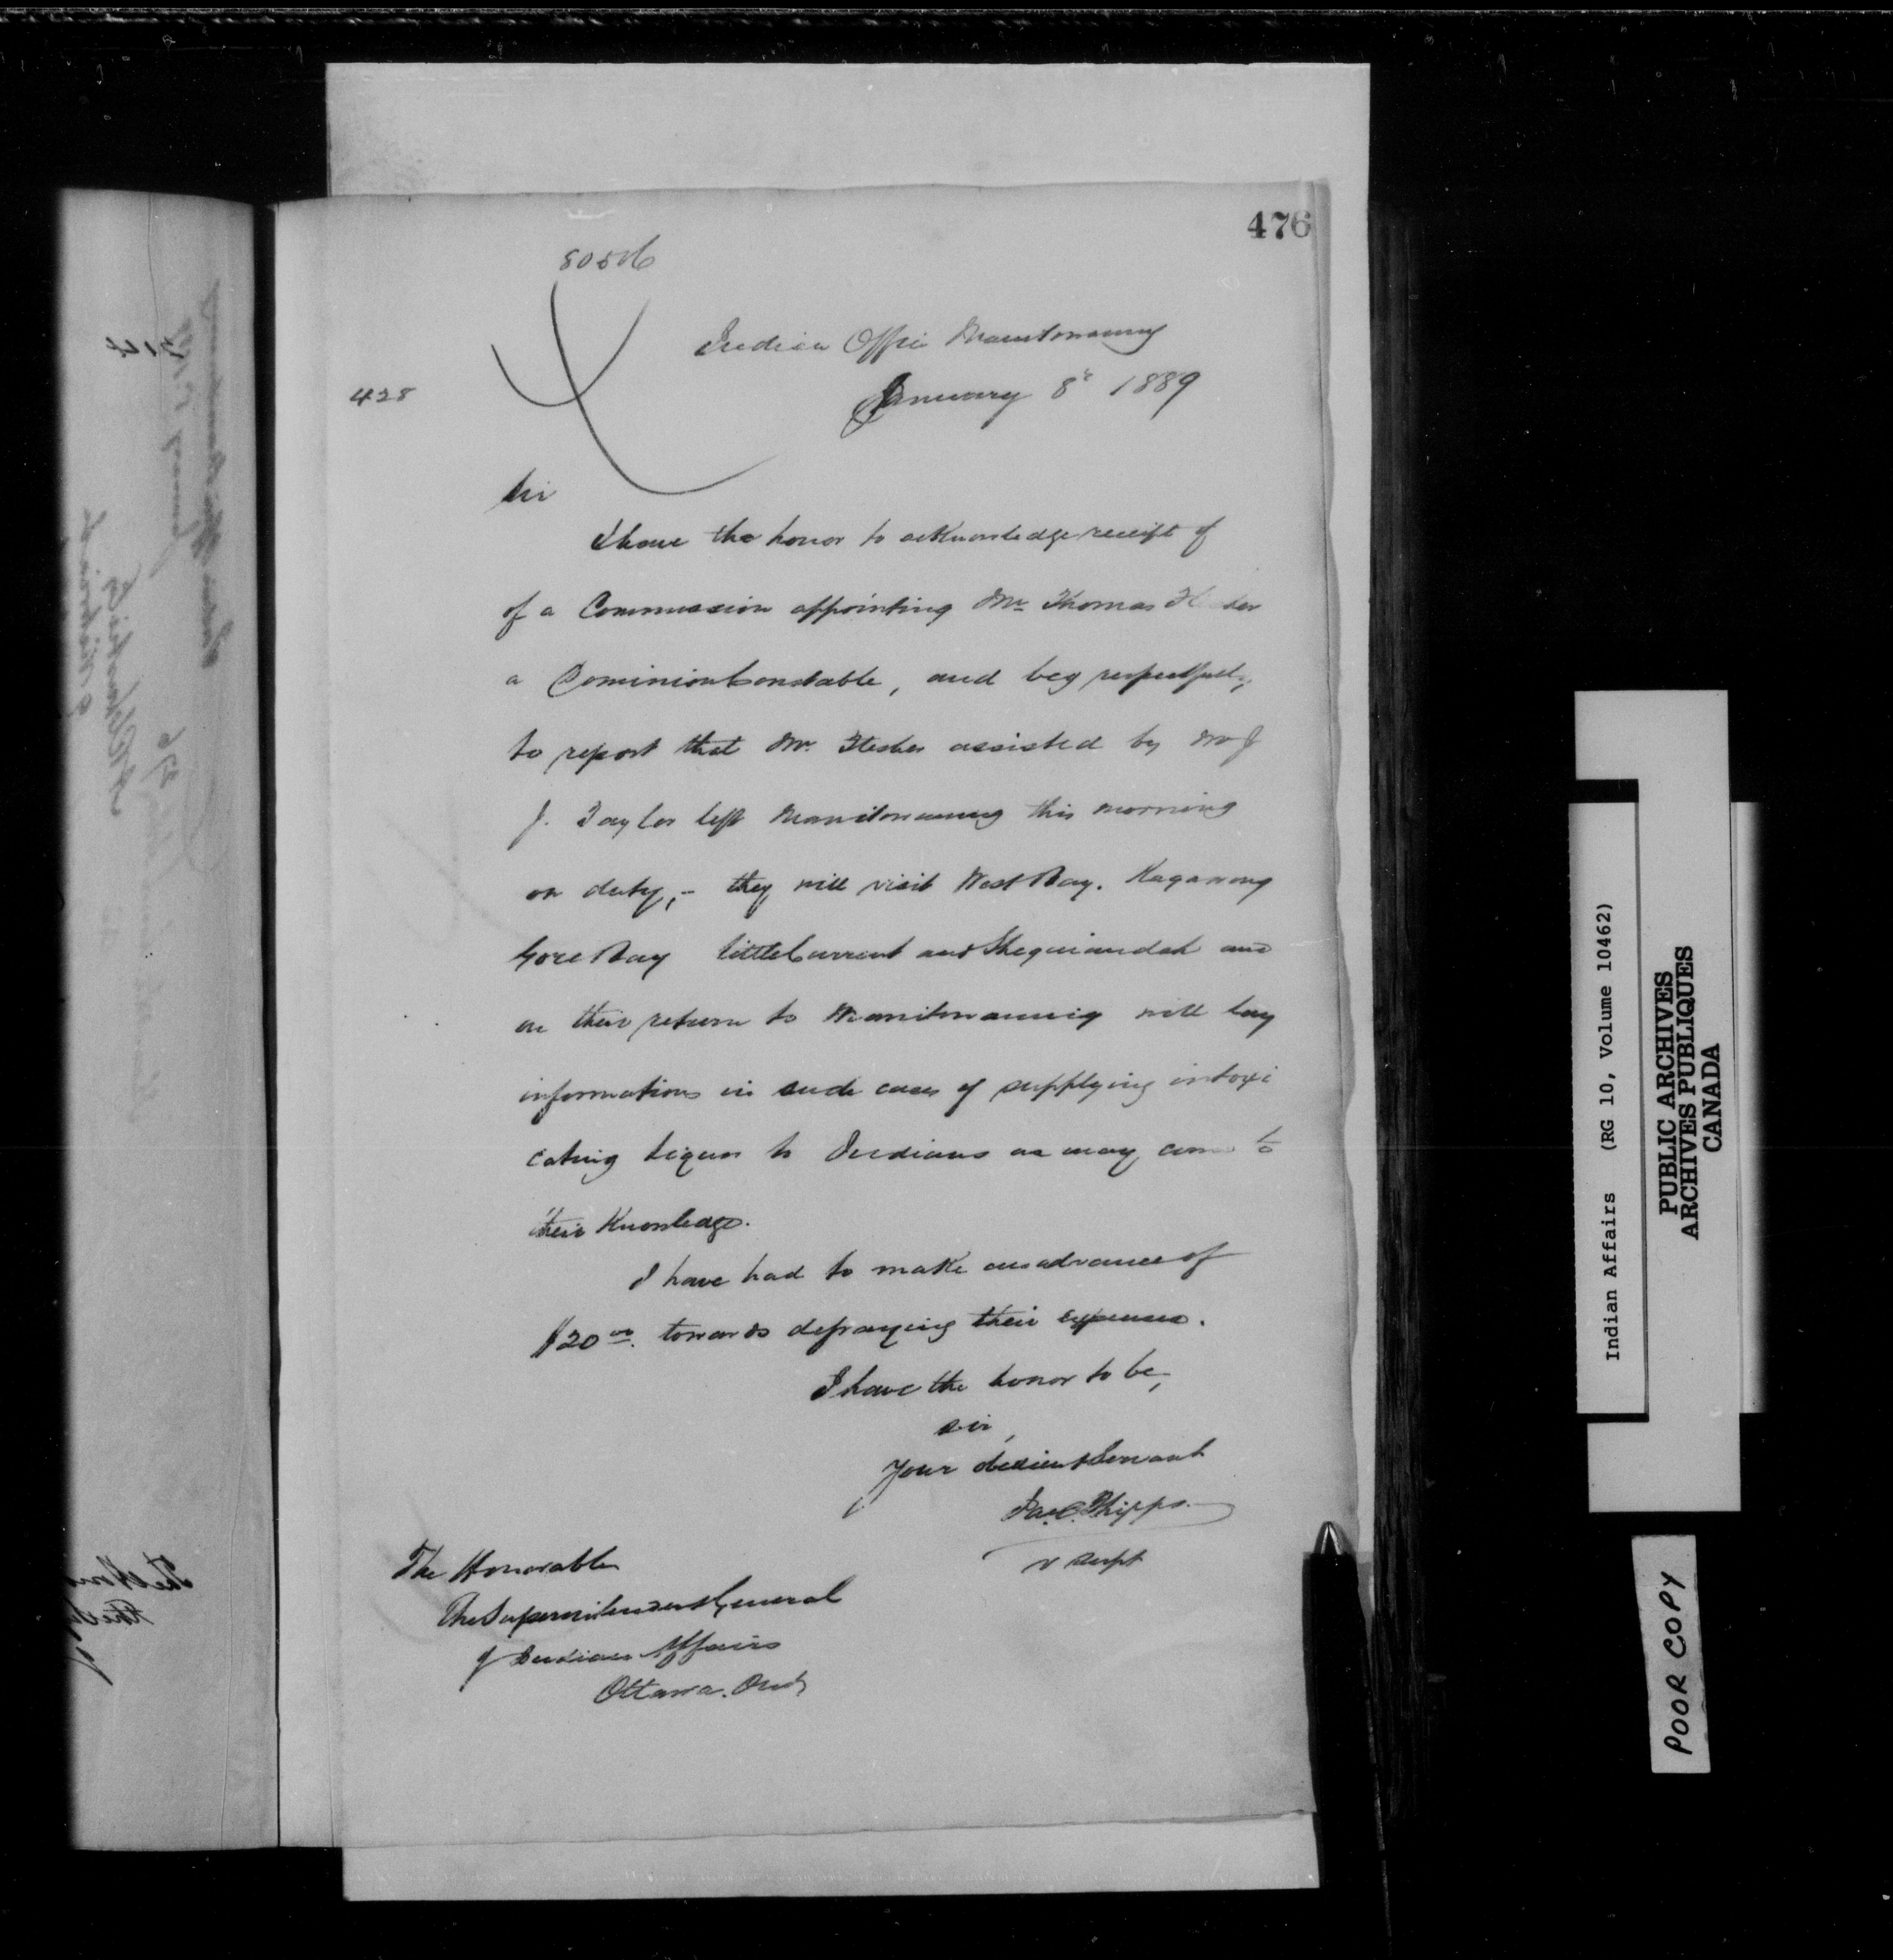 476
80506
Indian Office Manitowaning
January 8th 1889
428
Sir
I have the honor to acKnowledge receipt of
of a Commission appointing Mr Thomas
a Dominion Constable, and beg respectfully
to report that Mr. assisted by Mr J
J. Taylor left Manitowaning this morning
on duty,- they will visit West Bay. Kagawong
Gore Bay Little Current and Sheguiandah and
on their return to Manitowaning will lay
informations in such cases of supplying intoxi
cating liquor to Indians as may come to
their Knowledge.
I have had to make an advance of
$20 00. towards defraying their expenses.
I have the honor to be,
Sir,
Your obedient Servant
Jas. C. Phipps
V Supt
The Honorable
The Superintendent General
of Indian Affairs
Ottawa. Ont
Indian Affairs (RG 10, Volume 10462)
PUBLIC ARCHIVES
ARCHIVES PUBLIQUES
CANADA
POOR COPY